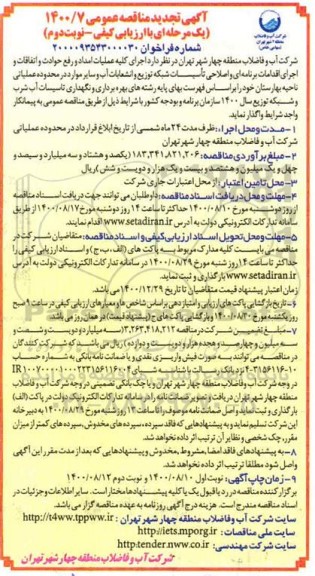 آگهی تجدید مناقصه عمومی ۱۴۰۰/۷
(یک مرحله ای با ارزیابی کیفی - نوبت دوم)
شماره فراخوان ۲۰۰۰۰۹۳۵۴۳۰۰۰۰۳۰
شرکت آب و فاضلاب منطقه چهار شهر تهران در نظر دارد اجرای کلیه عملیات امداد و رفع حوادث و اتفاقات و
اجرای اقدامات برنامه ای و اصلاحی تأسیسات شبکه توزیع و انشعابات آب و سایر موارد در محدوده عملیاتی
ناحیه بهارستان خود را براساس فهرست بهای پایه رشته های بهره برداری و نگهداری تاسیسات آب شرب
و شبکه توزیع سال ۱۴۰۰ سازمان برنامه و بودجه کشور با شرایط ذیل از طریق مناقصه عمومی به پیمانکار
واجد شرایط واگذار نماید.
۱-مدت و محل اجرا: ظرف مدت ۲۴ ماه شمسی از تاریخ ابلاغ قرارداد در محدوده عملیاتی
شرکت آب و فاضلاب منطقه چهار شهر تهران
۲-مبلغ برآوردی مناقصه: ۱۸۳,۳۴۱,۸۲۱,۲۰۶ (یکصد و هشتاد و سه میلیارد و سیصد و
چهل و یک میلیون و هشتصد و بیست و یک هزار و دویست و شش) ریال
۳-محل تامین اعتبار: از محل اعتبارات جاری شرکت
۴-مهلت و محل دریافت اسناد مناقصه: داوطلبان می توانند جهت دریافت اسناد مناقصه
از روز دوشنبه مورخ ۱۴۰۰/۰۸/۱۰ حداکثر تا ساعت ۱۴ روز دوشنبه مورخ ۱۴۰۰/۰۸/۱۷ از طریق
سامانه تدارکات الکترونیکی دولت به آدرس www.setadiran.ir اقدام نمایند.
۵-مهلت و محل تحویل اسناد ارزیابی کیفی و اسناد مناقصه: متقاضیان شرکت در
مناقصه می بایست کلیه مدارک مربوط به پاکت های (الف، ب، ج) و اسناد ارزیابی کیفی را
حداکثر تا ساعت ۱۴ روز شنبه مورخ ۱۴۰۰/۰۸/۲۹ در سامانه تدارکات الکترونیکی دولت به آدرس
www.setadiran.ir بارگذاری و ثبت نمایند.
زمان اعتبار پیشنهاد قیمت متقاضیان تا تاریخ ۱۴۰۰/۱۲/۲۹ می باشد.
۶-تاریخ بازگشایی پاکت های ارزیابی و امتیازدهی براساس شاخص ها و معیارهای ارزیابی کیفی در ساعت ۹ صبح
روز یکشنبه مورخ ۱۴۰۰/۰۸/۳۰ و بازگشایی پاکت های ج (پیشنهاد قیمت) در همان روز می باشد.
۷-مبلغ تضمین شرکت در مناقصه ۳,۲۶۳,۴۱۸,۲۱۲ (سه میلیارد و دویست و شصت و
سه میلیون و چهارصد و هجده هزار و دویست و دوازده) ریال می باشد که شرکت کنندگان
در مناقصه می توانند به صورت فیش واریزی نقدی و یا ضمانت نامه بانکی به شماره حساب
در وجه شرکت آب و فاضلاب منطقه چهار شهر تهران و یا چک بانکی تضمینی در وجه شرکت آب و فاضلاب
منطقه چهار شهر تهران دریافت و تصویر ضمانت نامه را در سامانه تدارکات الکترونیکی دولت در پاکت (الف)
بارگذاری و ثبت نمایند و اصل ضمانت نامه موصوف را تا ساعت ۱۴ روز شنبه مورخ ۱۴۰۰/۰۸/۲۹ به دبیرخانه
این شرکت تسلیم نماید و به پیشنهادهایی که فاقد سپرده، سپرده های مخدوش، سپرده های کمتر از میزان
مقرر، چک شخصی و نظایر آن ترتیب اثر داده نخواهد شد.
۸-به پیشنهادهای فاقد امضا، مشروط، مخدوش و پیشنهادهایی که بعد از مدت مقرر این آگهی
واصل شود مطلقا ترتیب اثر داده نخواهد شد.
۹-زمان چاپ آگهی: نوبت اول ۱۴۰۰/۰۸/۱۰ و نوبت دوم ۱۴۰۰/۰۸/۱۲
برگزارکننده مناقصه در رد یا قبول یک یا کلیه پیشنهادها مختار است. سایر اطلاعات و جزئیات در
اسناد مناقصه مندرج است. هزینه درج آگهی روزنامه به عهده مناقصه گزار می باشد.
سایت شرکت آب و فاضلاب منطقه چهار شهر تهران: http://t4ww.tppww.ir
سایت ملی مناقصات: http://iets.mporg.ir
سایت شرکت مهندسی: http:tender.nww.co.ir
شرکت آب و فاضلاب منطقه چهار شهر تهران